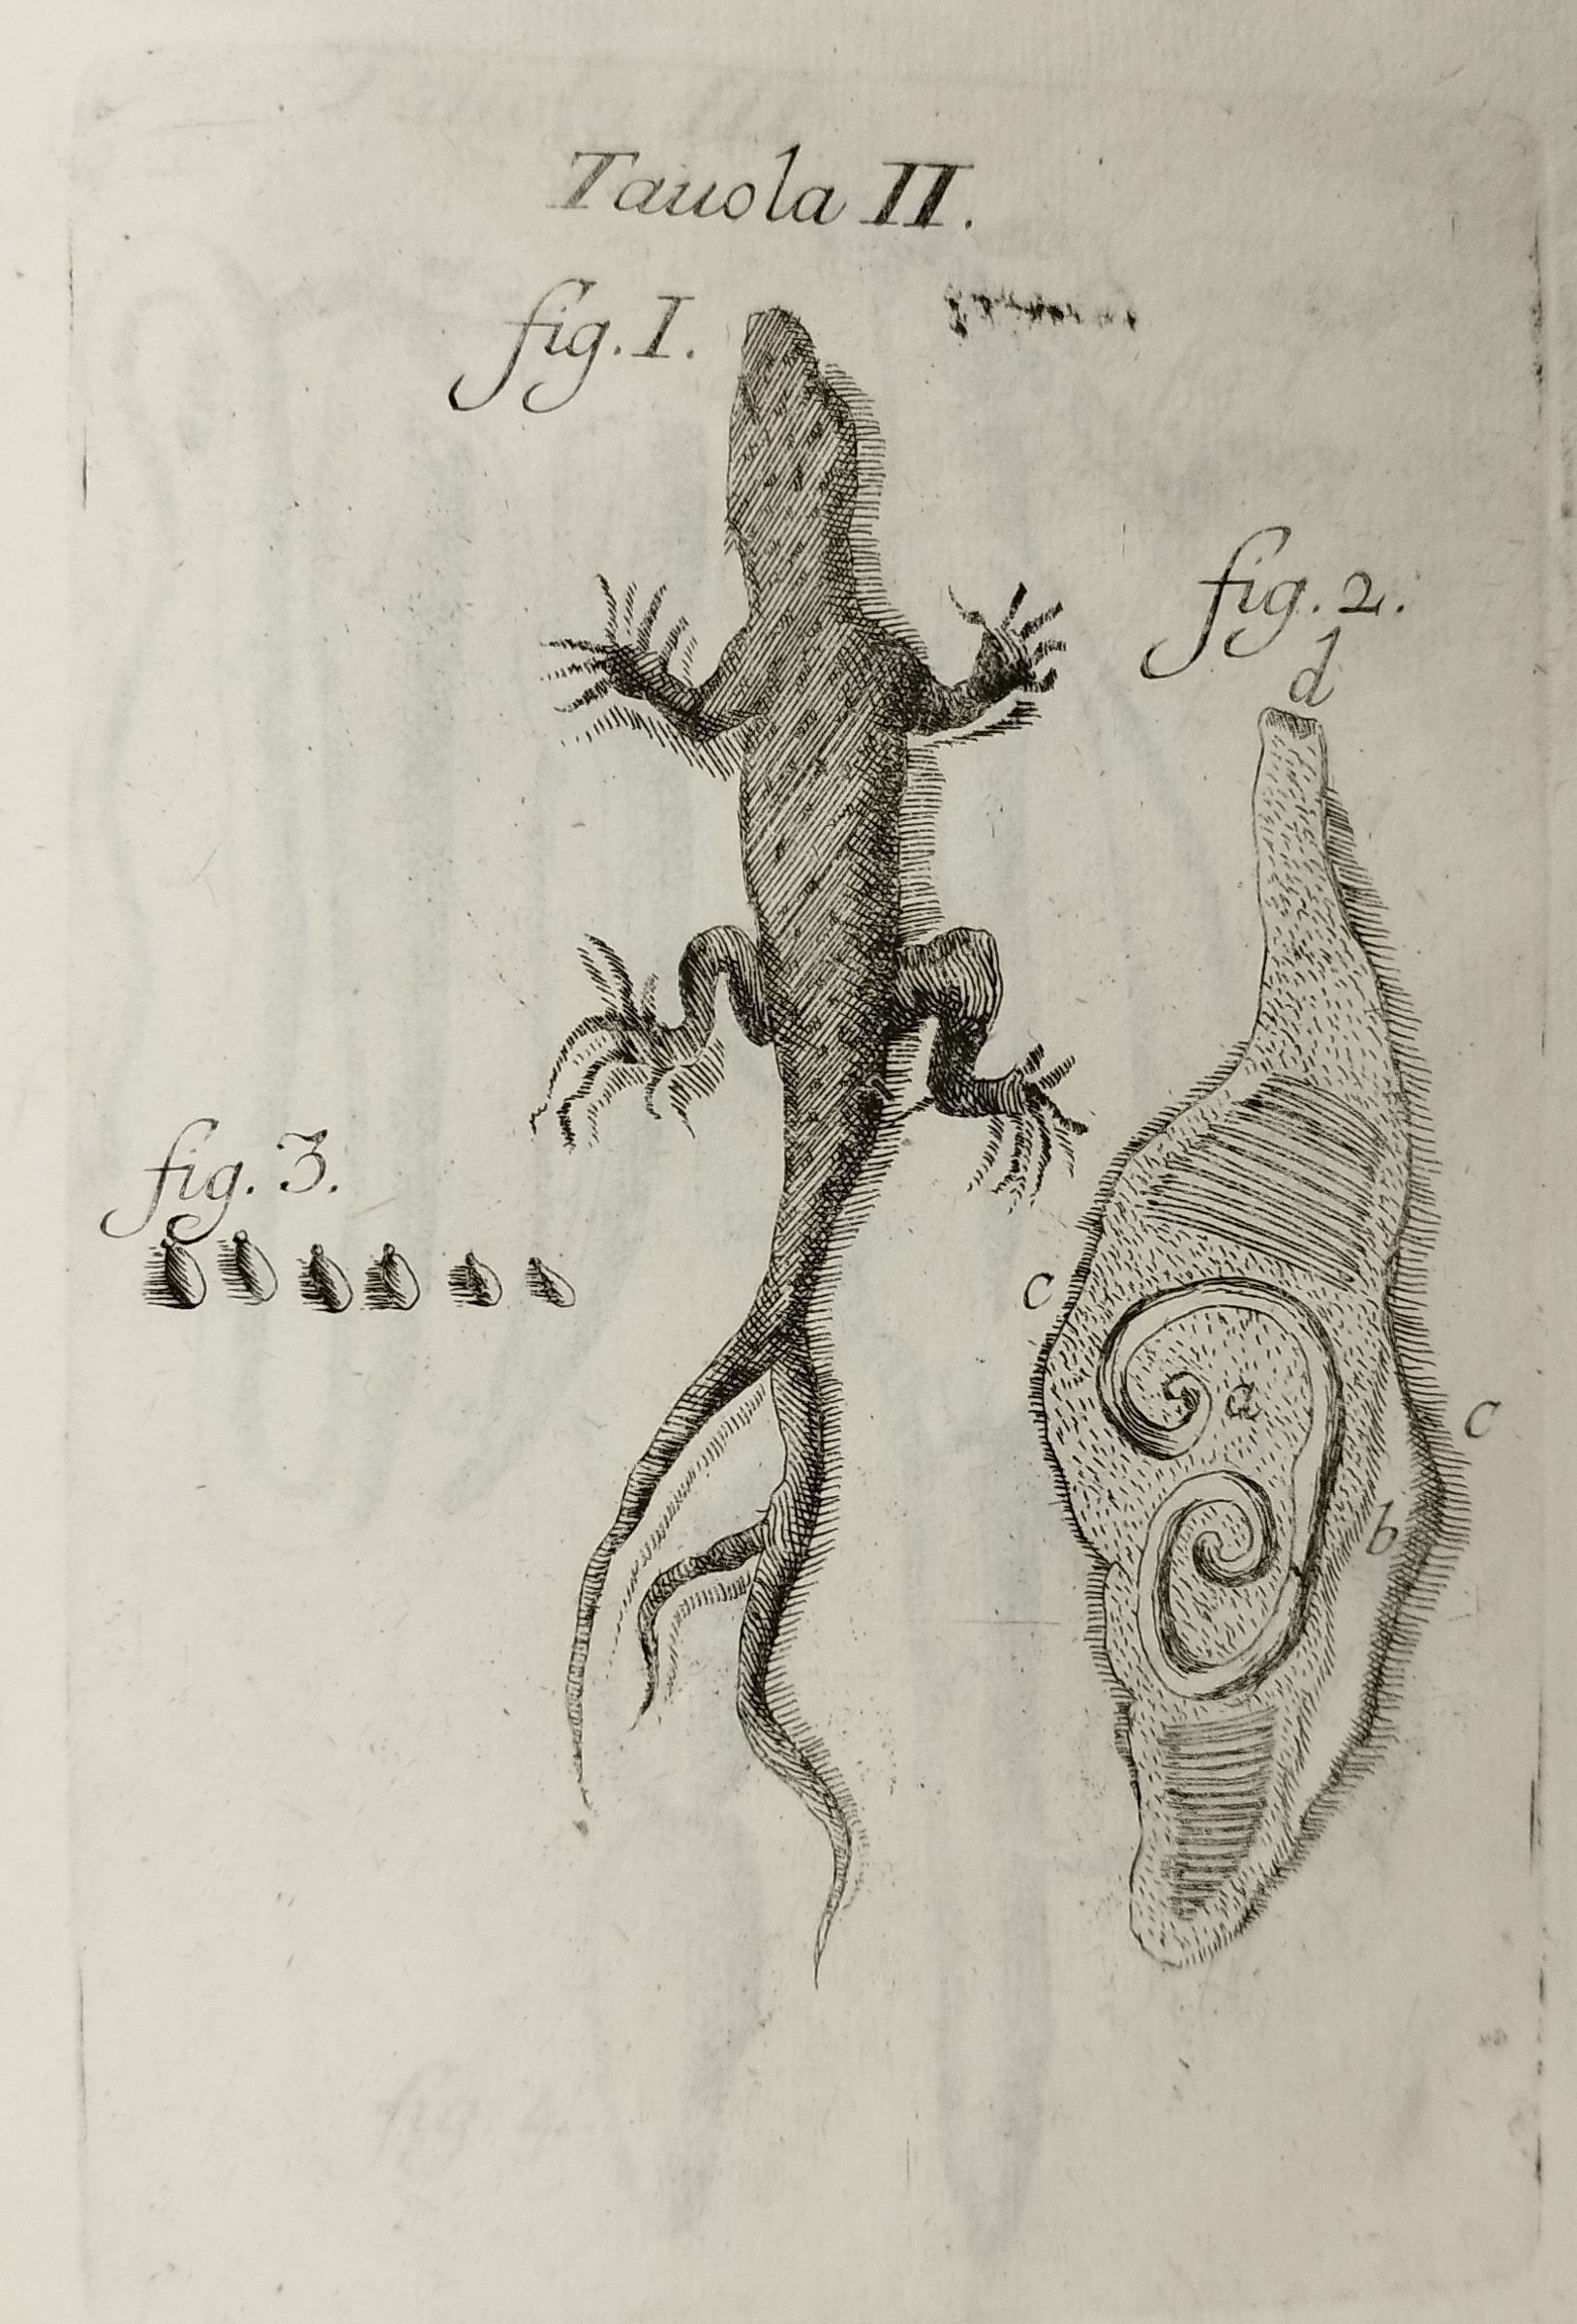 Tauola II.
fig. I.
fig. 2.
d
fig. 3.
c
a
c
b